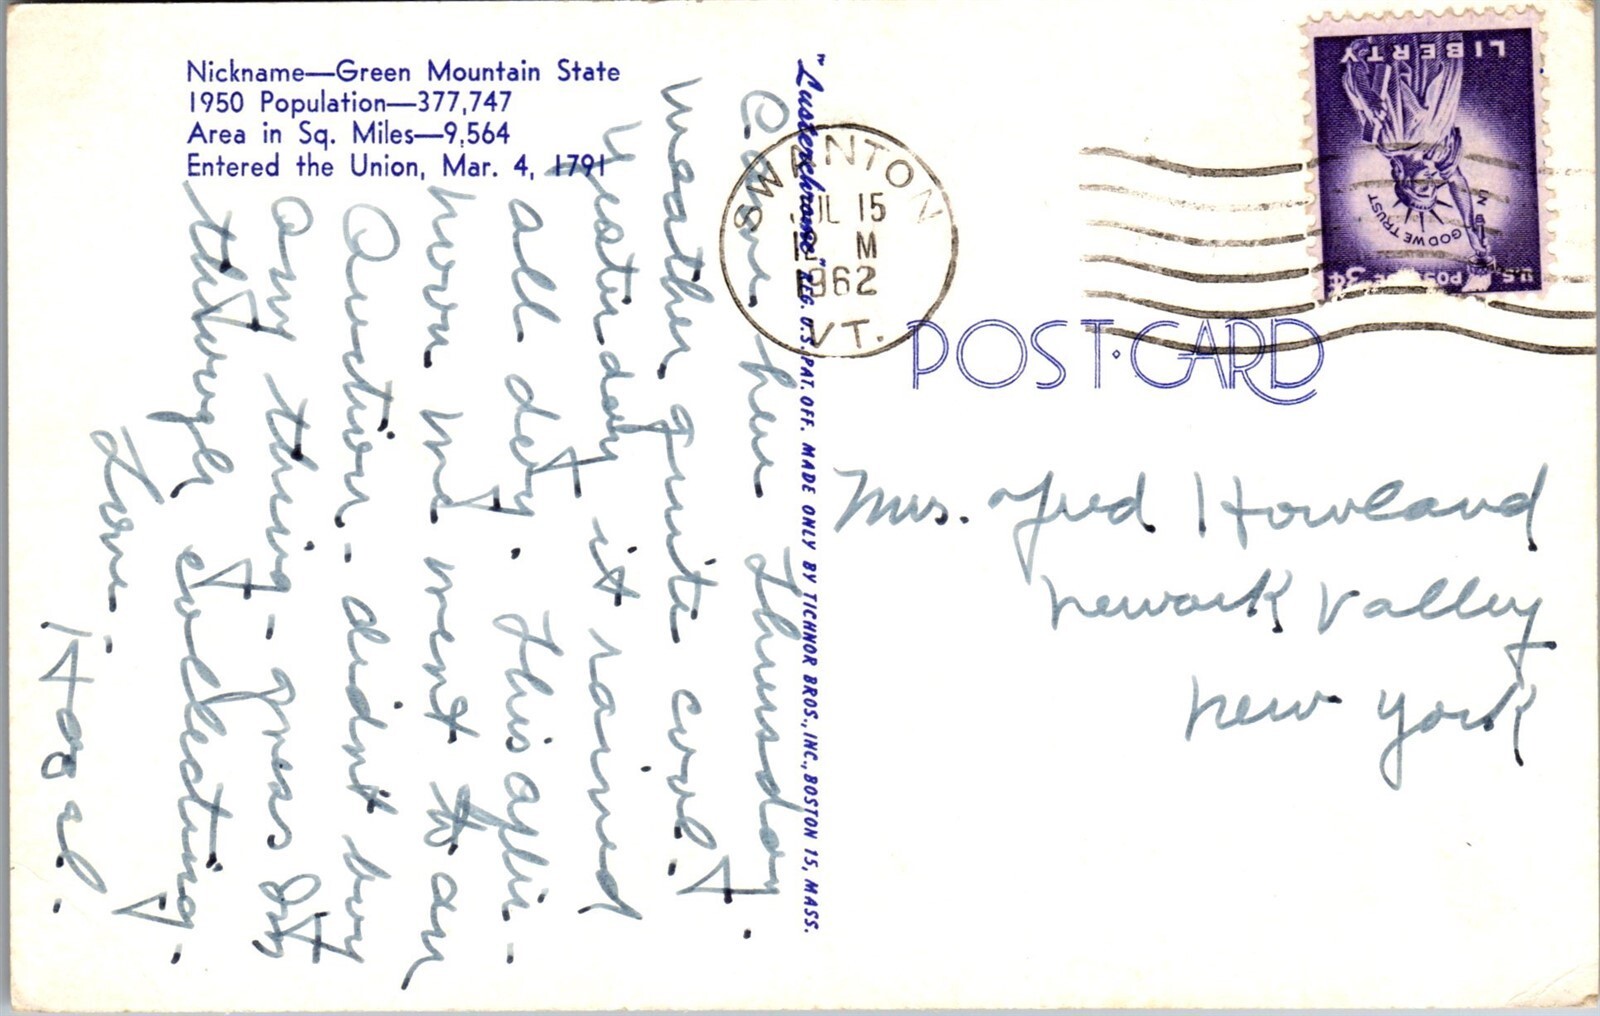 Nickname—Green Mountain State
1950 Population—377,747
Area in Sq. Miles—9,564
Entered the Union, Mar. 4, 1791
Came here Thursday.
Weather quite cool.
Yesterday it rained
all day. This after-
noon we went to an
Auction - didn't buy
any thing - guess I'm
through collecting.
Love -
Hazel.
"Lusterchrome" REG. U.S. PAT. OFF. MADE ONLY BY TICHNOR BROS., INC., BOSTON 15, MASS.
SWANTON
JUL 15
12 M
1962
VT.
LIBERTY
IN GOD WE TRUST
U.S. POSTAGE 3¢
POST CARD
Mrs. Fred Howland
Newark Valley
New York